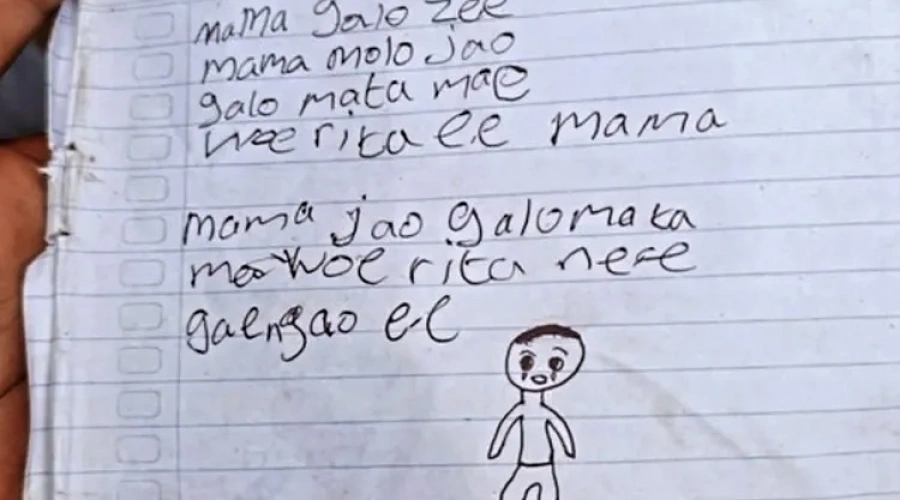 mama galo zee
mama molo jao
galo mata mae
woe rita ee mama
mama jao galo mata
mae woe rita ne-e
gae ngao e-e